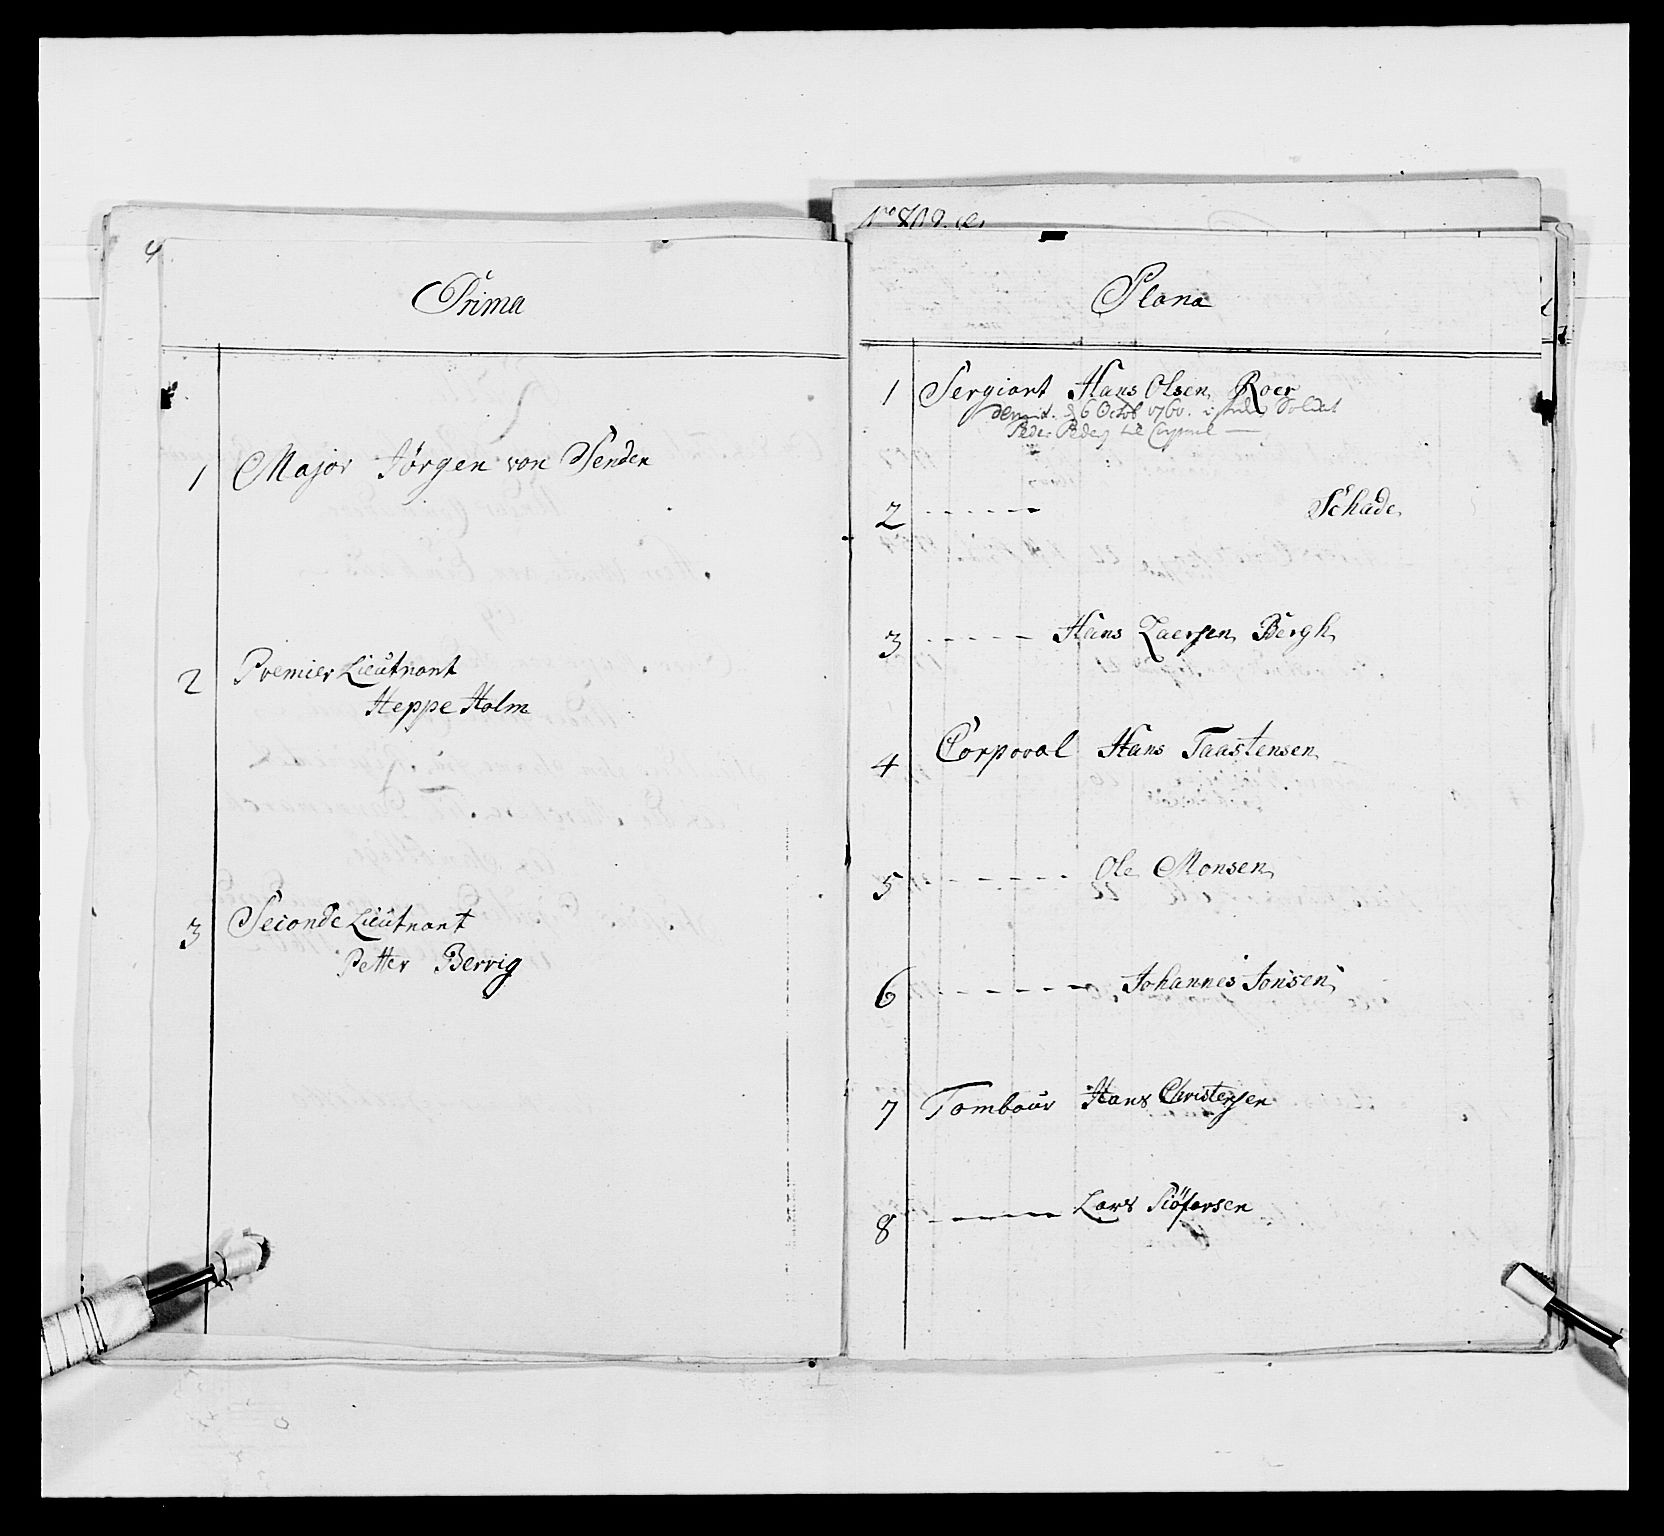 Prima
1 Major Jørgen von Henden
2 Premier Lieutnant
Heppe Holm
3 Seconde Lieutnant
Petter Bervig
Plana
1 Sergiant Hans Olsen Roer
6 Octob 1760. Soldat
Peder
2 - - - - - - Schade
3 - - - - - Hans Laersen Bergh
4 Corporal Hans Taastensen
5 - - - - - - Ole Monsen
6 - - - - - - Johannes Jonsen
7 Tambour Hans Christensen
8 - - - - - Lars Siøfarsen